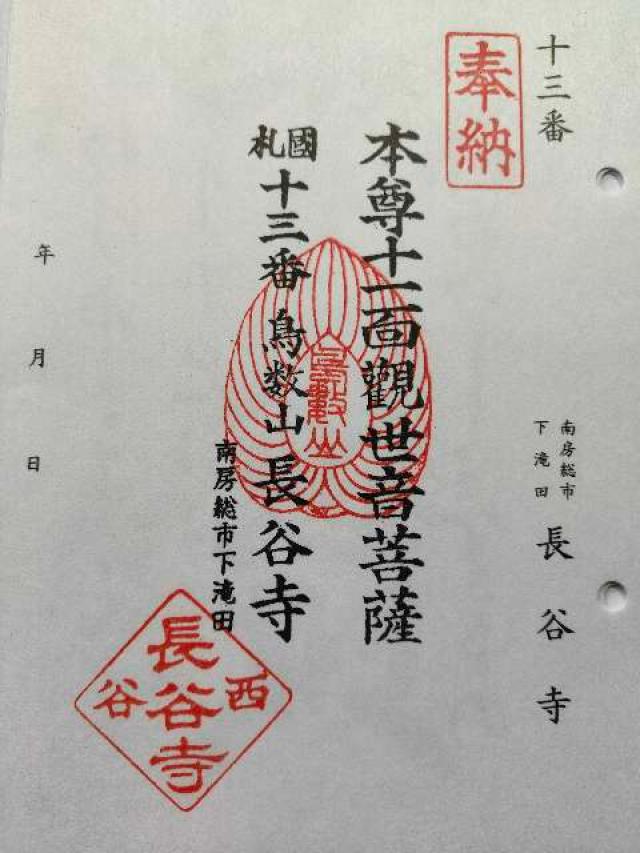 十三番
奉納
南房総市
下滝田
長谷寺
本尊十一面觀世音菩薩
國札十三番 鳥数山 長谷寺
南房総市下滝田
鳥數山
西
長谷寺
谷
年 月 日